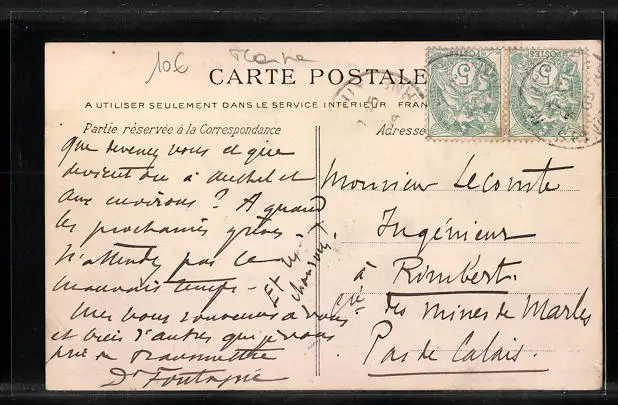 106
CARTE POSTALE
A UTILISER SEULEMENT DANS LE SERVICE INTÉRIEUR FRAN
Partie réservée à la Correspondance
Adresse
POSTES
5
POSTES
5
que devenez vous et que
devient on à Auchel et
aux environs ? A quand
les prochaines grèves
N'attendez pas le
mauvais temps -
Et les chansons ?
Mes bons souvenirs à vous
et bien d'autres que je vous
prie de transmettre
Dr
Monsieur Lecomte
Ingénieur
à Rimbert.
Cie des mines de Marles
Pas de Calais.